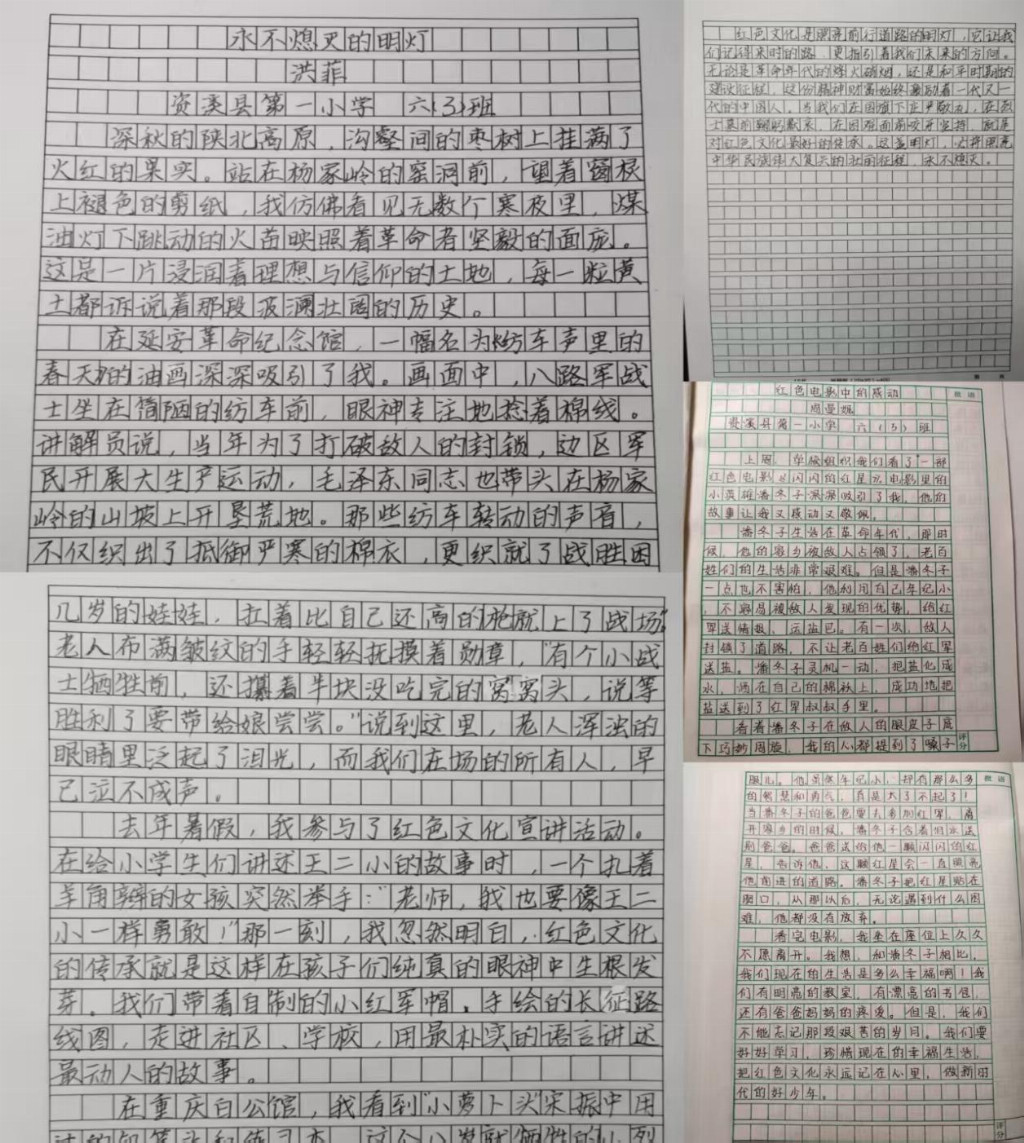 永不熄灭的明灯
洪菲
资溪县第一小学 六(3)班
深秋的陕北高原，沟壑间的枣树上挂满了
火红的果实。站在杨家岭的窑洞前，望着窗棂
上褪色的剪纸，我仿佛看见无数个寒夜里，煤
油灯下跳动的火苗映照着革命者坚毅的面庞。
这是一片浸润着理想与信仰的土地，每一粒黄
土都诉说着那段波澜壮阔的历史。
在延安革命纪念馆，一幅名为《纺车声里的
春天》的油画深深吸引了我。画面中，八路军战
士坐在简陋的纺车前，眼神专注地捻着棉线。
讲解员说，当年为了打破敌人的封锁，边区军
民开展大生产运动，毛泽东同志也带头在杨家
岭的山坡上开垦荒地。那些纺车转动的声音，
不仅织出了抵御严寒的棉衣，更织就了战胜困
几岁的娃娃，扛着比自己还高的枪就上了战场"
老人布满皱纹的手轻轻抚摸着勋章，"有个小战
士牺牲前，还攥着半块没吃完的窝窝头，说等
胜利了要带给娘尝尝。"说到这里，老人浑浊的
眼睛里泛起了泪光，而我们在场的所有人，早
已泣不成声。
去年暑假，我参与了红色文化宣讲活动。
在给小学生们讲述王二小的故事时，一个扎着
羊角辫的女孩突然举手："老师，我也要像王二
小一样勇敢！"那一刻，我忽然明白，红色文化
的传承就是这样在孩子们纯真的眼神中生根发
芽。我们带着自制的小红军帽，手绘的长征路
线图，走进社区、学校，用最朴实的语言讲述
最动人的故事。
在重庆白公馆，我看到"小萝卜头"宋振中用
这个八岁就牺牲的小烈
红色文化是照亮前行道路的明灯，它让我
们记得来时的路，更指引着我们未来的方向。
无论是革命年代的烽火硝烟，还是和平时期的
建设征程，这份精神财富始终激励着一代又一
代的中国人。当我们在国旗下庄严敬礼，在烈
士墓前鞠躬献花，在困难面前咬牙坚持，都是
对红色文化最好的传承。这盏明灯，必将照亮
中华民族伟大复兴的壮丽征程，永不熄灭。
红色电影中的感动
周曼妮
资溪县第一小学 六(3)班
上周，学校组织我们看了一部
红色电影《闪闪的红星》。电影里的
小英雄潘冬子深深吸引了我，他的
故事让我又感动又敬佩。
潘冬子生活在革命年代，那时
候，他的家乡被敌人占领了，老百
姓们的生活非常艰难。但是潘冬子
一点也不害怕，他利用自己年纪小
，不容易被敌人发现的优势，给红
军送情报、运盐巴。有一次，敌人
封锁了道路，不让老百姓们给红军
送盐。潘冬子灵机一动，把盐化成
水，洒在自己的棉袄上，成功地把
盐送到了红军叔叔手里。
看着潘冬子在敌人的眼皮子底
下巧妙周旋，我的心都提到了嗓子
眼儿。他虽然年纪小，却有那么多
的智慧和勇气，真是太了不起了！
当潘冬子的爸爸要去参加红军，离
开家乡的时候，潘冬子含着泪水送
别爸爸。爸爸送给他一颗闪闪的红
星，告诉他，这颗红星会一直照亮
他前进的道路。潘冬子把红星贴在
胸口，从那以后，无论遇到什么困
难，他都没有放弃。
看完电影，我坐在座位上久久
不愿离开。我想，和潘冬子相比，
我们现在的生活是多么幸福啊！我
们有明亮的教室，有漂亮的书包，
还有爸爸妈妈的疼爱。但是，我们
不能忘记那段艰苦的岁月。我们要
好好学习，珍惜现在的幸福生活，
把红色文化永远记在心里，做新时
代的好少年。